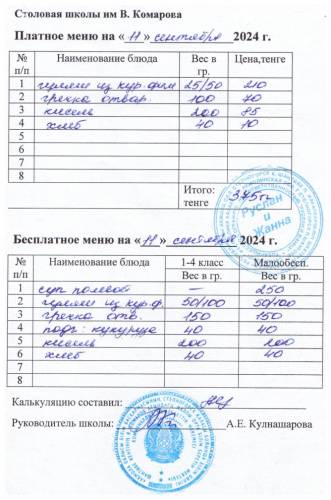 Столовая школы им В. Комарова
Платное меню на « 11 » сентября 2024 г.
№ п/п Наименование блюда Вес в гр. Цена,тенге
1 гуляш из кур. фил 25/50 210
2 гречка отвар. 100 70
3 кисель 200 85
4 хлеб 40 10
5
6
7
8
Итого: 375 тг
тенге
Руслан
и
Жанна
Бесплатное меню на « 11 » сентября 2024 г.
№ п/п Наименование блюда 1-4 класс Малообесп.
Вес в гр. Вес в гр.
1 суп полевой — 250
2 гуляш из кур.ф. 50/100 50/100
3 гречка отв. 150 150
4 подг: кукуруза 40 40
5 кисель 200 200
6 хлеб 40 40
7
8
Калькуляцию составил:
Руководитель школы: А.Е. Кулнашарова